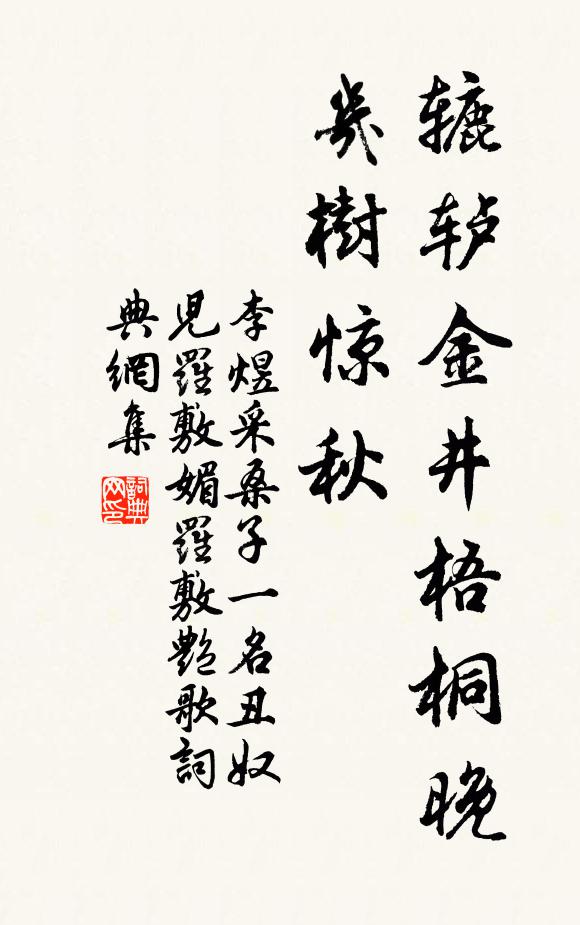 辘轳金井梧桐晚
幾樹惊秋
李煜采桑子一名丑奴
児羅敷媚羅敷艷歌詞
典網集
詞典
网印